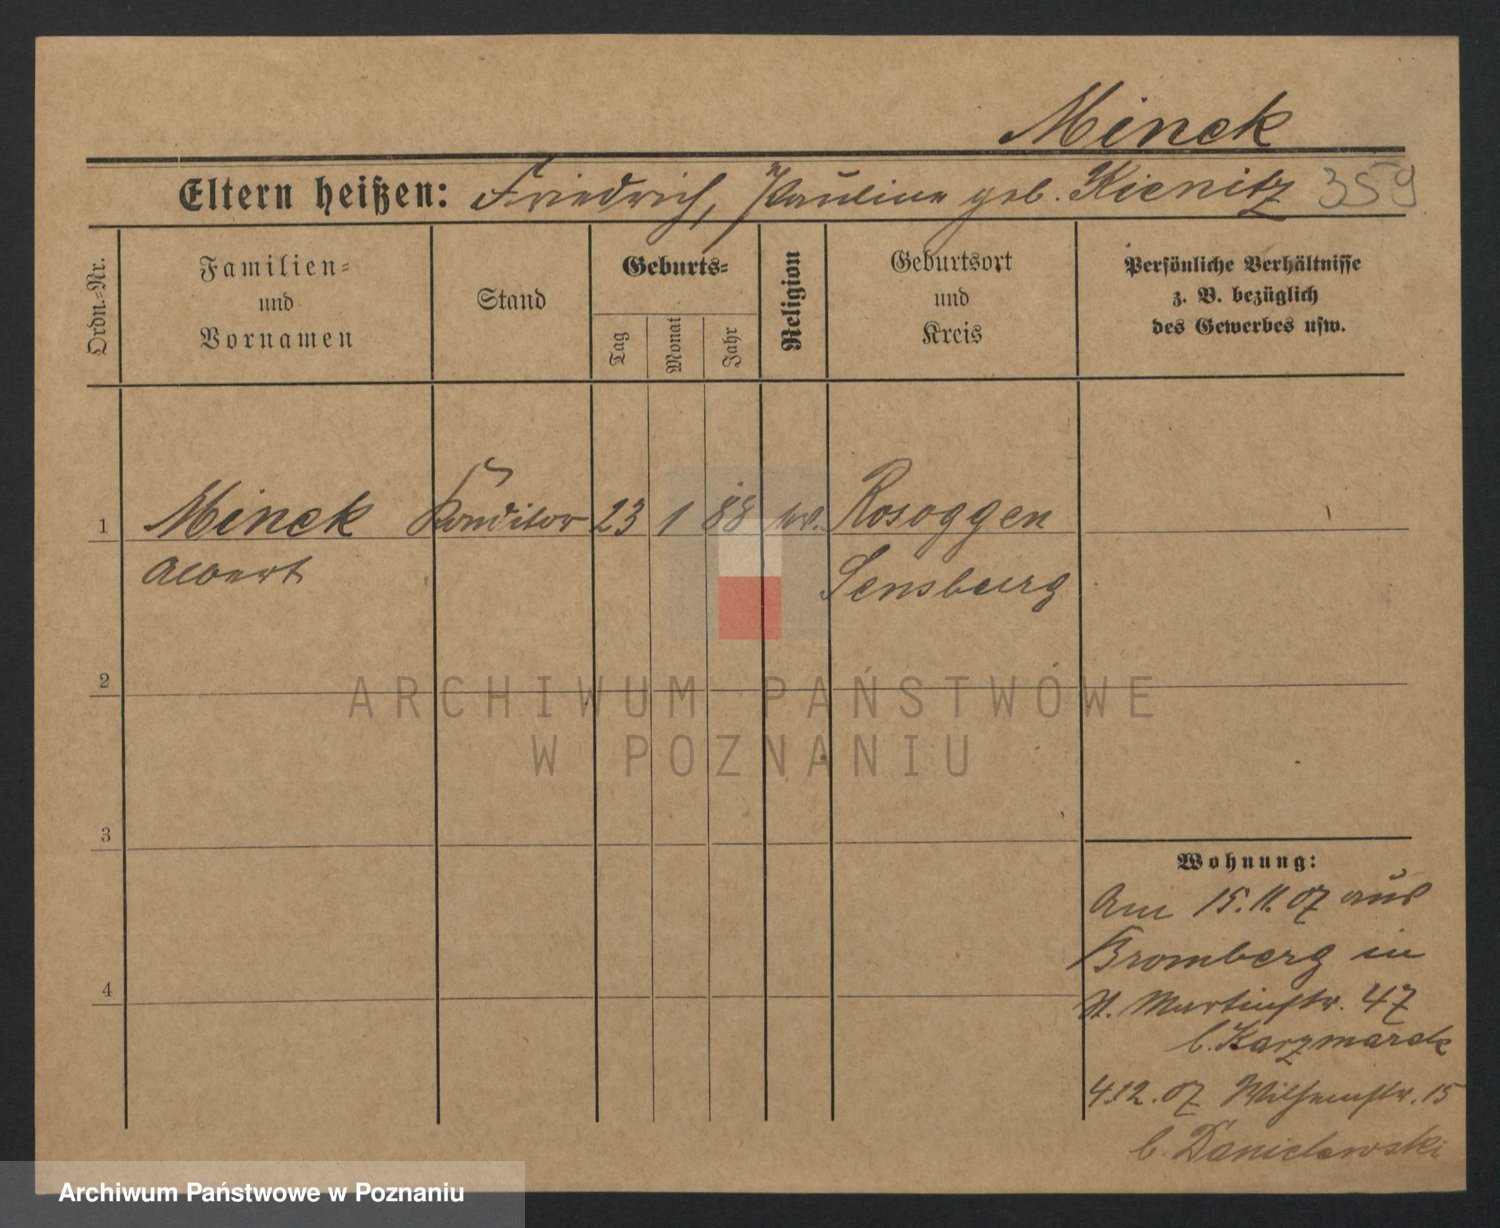 Minck
Eltern heißen: Friedrich, Pauline geb. Kienitz 359
Ordn.-Nr.
Familien-
und
Vornamen
Stand
Geburts-
Tag
Monat
Jahr
Religion
Geburtsort
und
Kreis
Persönliche Verhältnisse
z. B. bezüglich
des Gewerbes usw.
1 Minck Konditor 23 1 88 ev. Rosoggen
Albert Sensburg
2
ARCHIWUM PAŃSTWOWE
W POZNANIU
3
Wohnung:
Am 15.11.07 aus
Bromberg in
St. Martinstr. 47
b. Karzmarek
4
4.12.07 Wilhelmstr. 15
b. Danielewski
Archiwum Państwowe w Poznaniu